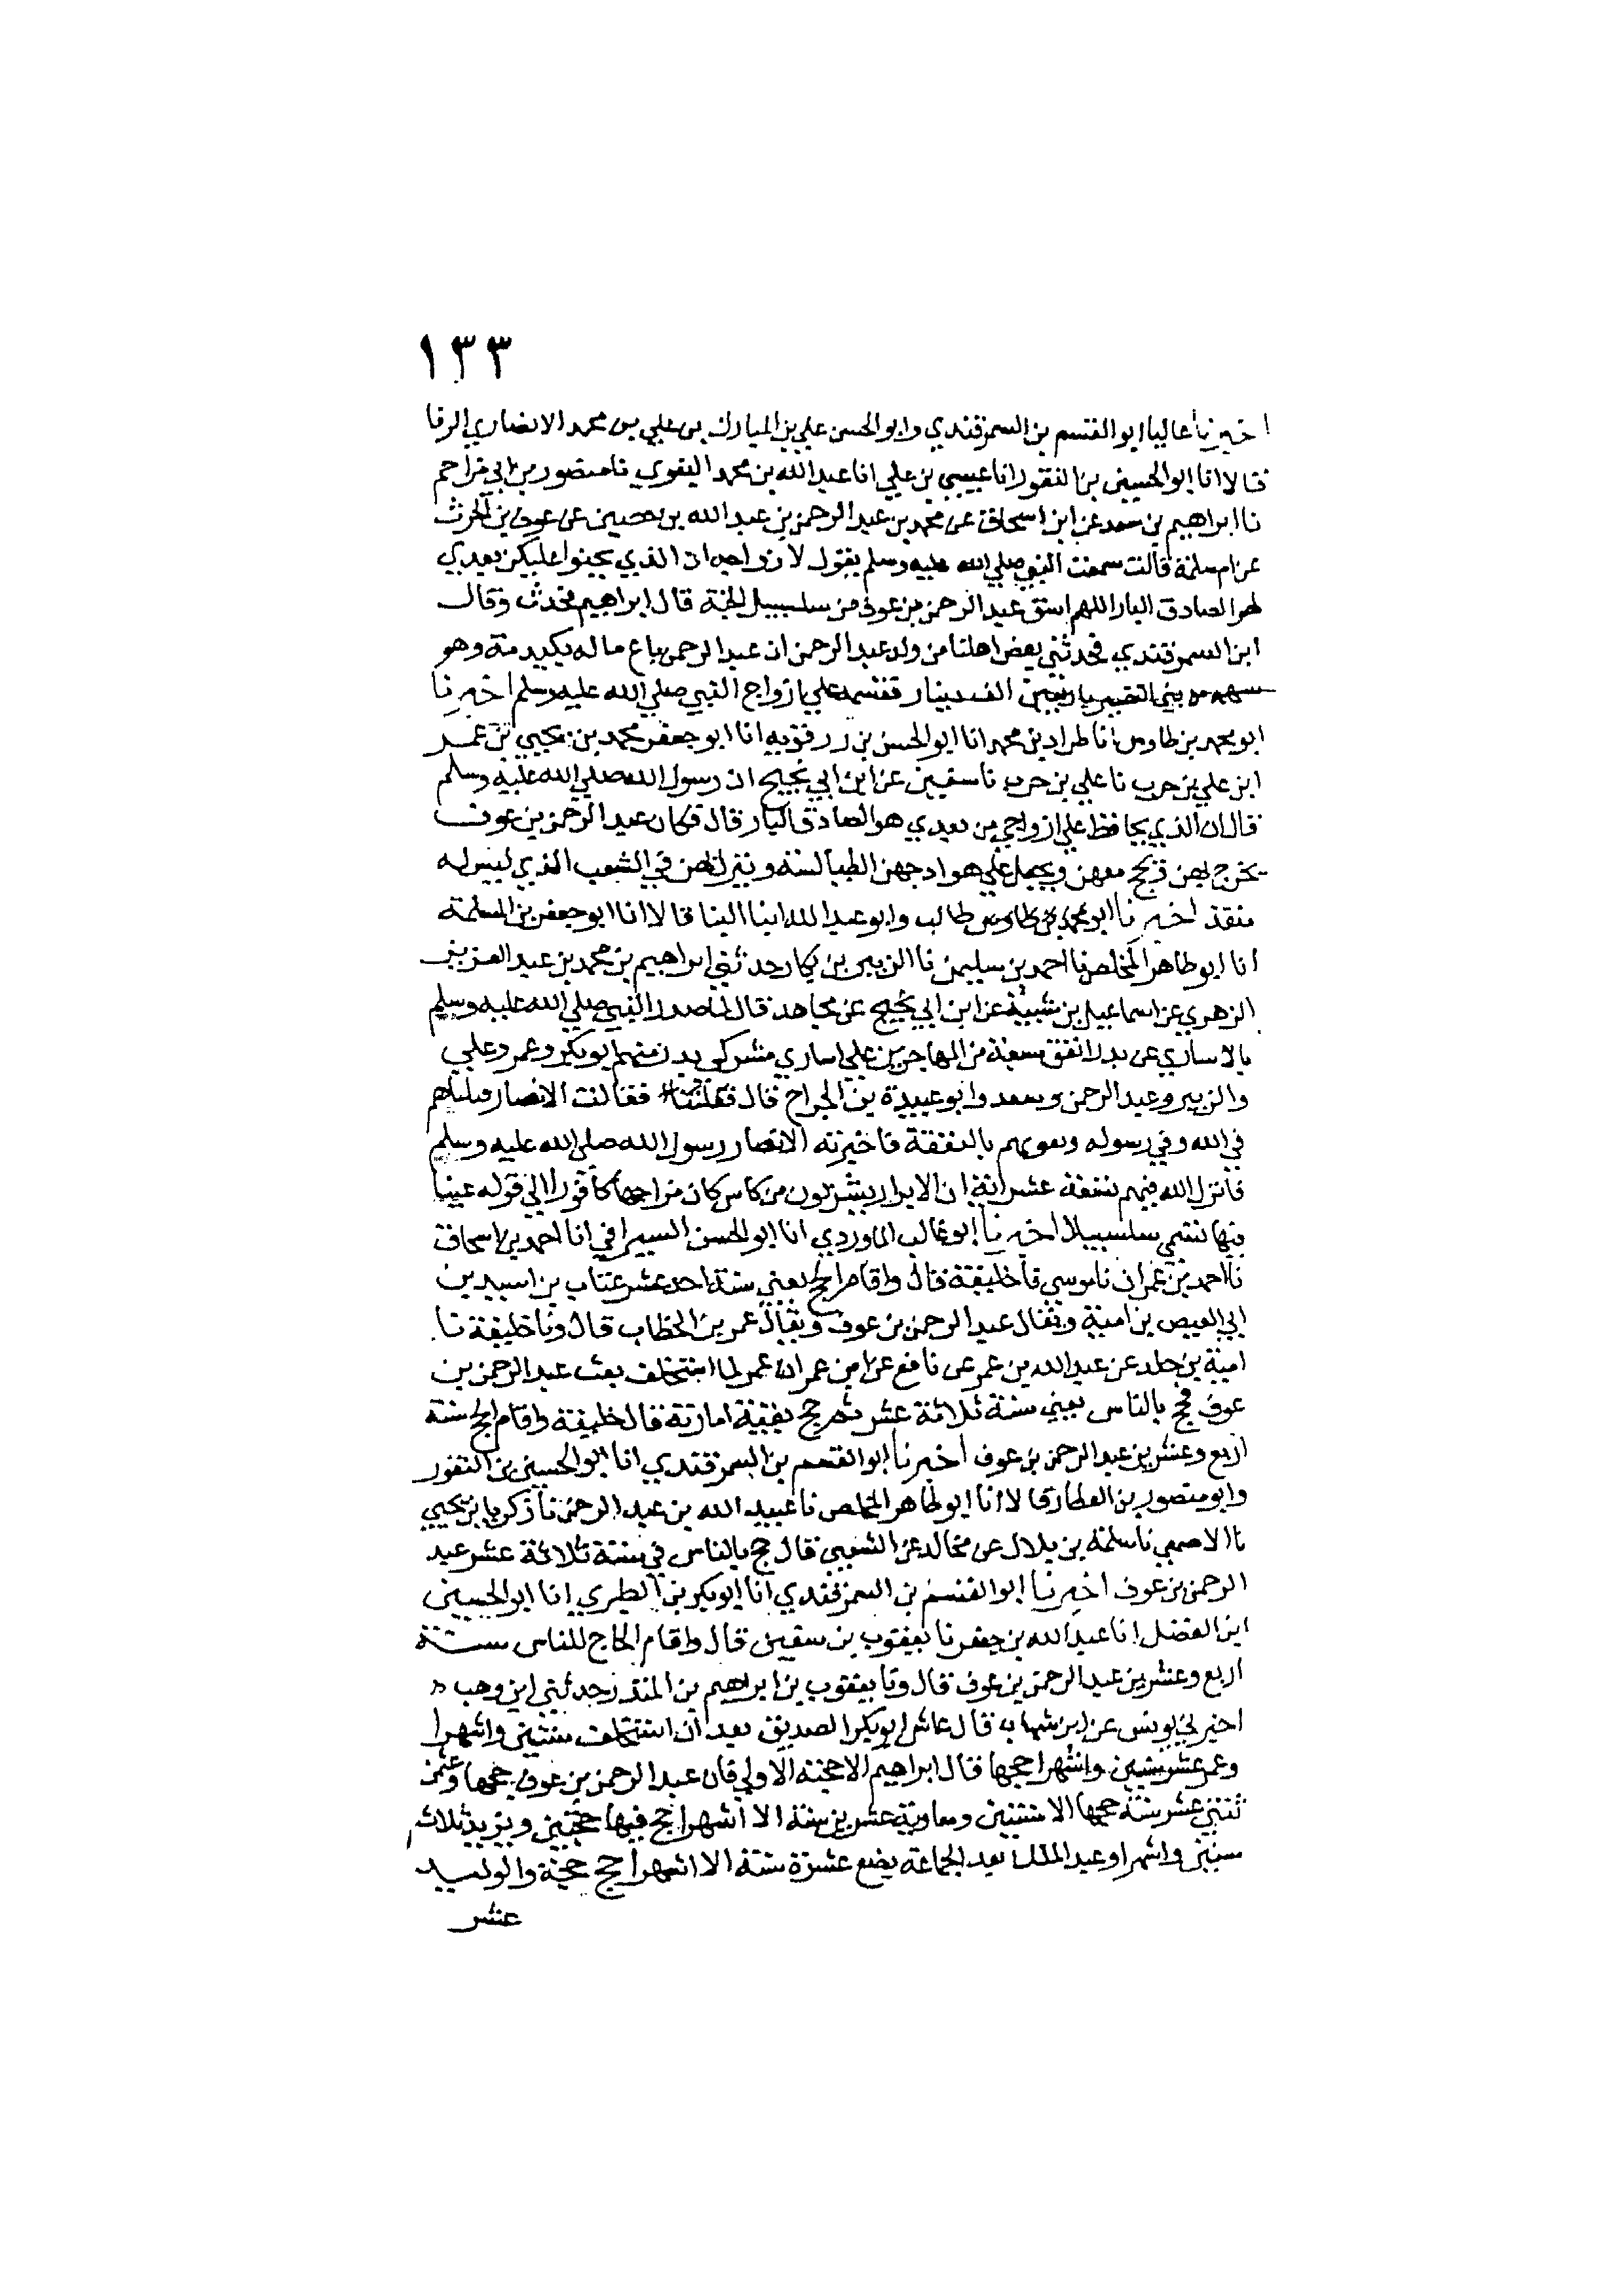 ١٣٣
اخبرنا عاليا ابو القسم بن السمرقندي وابو الحسن علي بن المبارك بن علي بن محمد الانصاري الرفا
قالا انا ابو الحسين بن النقور انا عيسي بن علي انا عبد الله بن محمد البغوي نا منصور بن ابي مزاحم
نا ابراهيم بن سعد عن ابن اسحاق عن محمد بن عبد الرحمن بن عبد الله بن حصين عن عوف بن الحرث
عن ام سلمة قالت سمعت النبي صلي الله عليه وسلم يقول لازواجه ان الذي يحنوا عليكن بعدي
لهو الصادق البار اللهم اسق عبد الرحمن بن عوف من سلسبيل الجنة قال ابراهيم فحدث وقال
ابن السمرقندي فحدثني بعض اهلنا من ولد عبد الرحمن ان عبد الرحمن باع ماله بكيدمة وهو
سهمه من بني النضير باربعين الف دينار فقسمه علي ازواج النبي صلي الله عليه وسلم اخبرنا
ابو محمد بن طاوس انا طراد بن محمد انا ابو الحسن بن زرقويه انا ابو جعفر محمد بن يحيي بن عمر
ابن علي بن حرب نا علي بن حرب نا سفيين عن ابن ابي نجيح ان رسول الله صلي الله علية وسلم
قال ان الذي يحافظ علي ازواجي من بعدي هو الصادق البار قال فكان عبد الرحمن بن عوف
يخرج بهن ويحج معهن ويجعل علي هوادجهن الطيالسة وينزل بهن في الشعب الذي ليس له
منفذ اخبرنا ابو طالب وابو عبد الله ابنا البنا قالا انا ابو جعفر بن المسلمة
انا ابو طاهر المخلص نا احمد بن سليمن نا الزبير بن بكار حدثني ابراهيم بن محمد بن عبد العزيز
الزهري عن اسماعيل بن شيبة عن ابن ابي نجيح عن مجاهد قال لما صدر النبي صلي الله عليه وسلم
بالاساري عن بدر انفق سبعة من المهاجرين علي اساري مشركي بدر منهم ابو بكر وعمر وعلي
والزبير وعبد الرحمن وسعد وابو عبيدة بن الجراح قال فقالت الانصار قتلناهم
في الله وفي رسوله وتعونهم بالنفقة فاخبرته الانصار رسول الله صلي الله عليه وسلم
فانزل الله فيهم تسعة عشر اية ان الابرار يشربون من كاس كان مزاجها كافورا الي قوله عينا
فيها تسمي سلسبيلا اخبرنا ابو غالب الماوردي انا ابو الحسن السيرافي انا احمد بن اسحاق
نا احمد بن عمران نا موسي نا خليفة قال واقام الحج يعني سنة احد عشر عتاب بن اسيد بن
ابي العيص بن امية ويقال عبد الرحمن بن عوف ويقال عمر بن الخطاب قال ونا خليفة نا
امية بن خلد عن عبد الله بن عمر عن نافع عن ابن عمر ان عمر لما استخلف بعث عبد الرحمن بن
عوف فحج بالناس يعني سنة ثلاثة عشر ثم حج بقية امارته قال خليفة واقام الحج سنة
اربع وعشرين عبد الرحمن بن عوف اخبرنا ابو القسم بن السمرقندي انا ابو الحسين بن النقور
وابو منصور بن العطار قالا انا ابو طاهر المخلص نا عبيد الله بن عبد الرحمن نا زكريا بن يحيي
نا الاصمعي نا سلمة بن بلال عن مجالد عن الشعبي قال حج بالناس في سنة ثلاثة عشر عبد
الرحمن بن عوف اخبرنا ابو القسم بن السمرقندي انا ابو بكر بن الطبري انا ابو الحسين
ابن الفضل انا عبد الله بن جعفر نا يعقوب بن سفين قال واقام الحاج للناس سنة
اربع وعشرين عبد الرحمن بن عوف قال ونا يعقوب بن ابراهيم بن المنذر حدثني ابن وهب
اخبرني يونس عن ابن شهاب قال عاش ابو بكر الصديق بعد ان استخلف سنتين واشهرا
وعمر عشر سنين واشهرا حجها قال ابراهيم الا حجته الاولي فان عبد الرحمن بن عوف حجها وعثمن
ثنتي عشر سنة حجها الا سنتين ومعاوية عشرين سنة الا اشهرا حج فيها حجتين ويزيد ثلاث
سنين واشهرا وعبد الملك بعد الجماعة بضع عشرة سنة الا اشهرا حج حجة والوليد
عشر